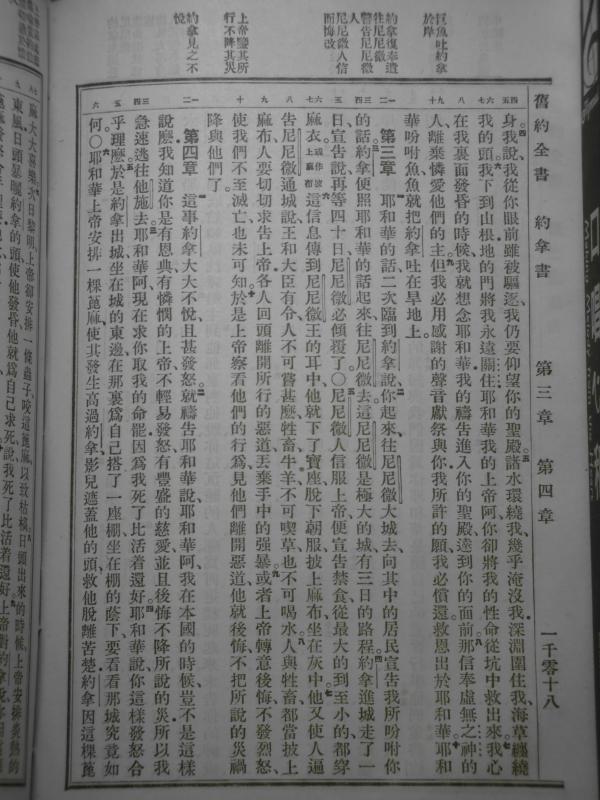 舊約全書　約拿書　第三章　第四章　一千零十八
巨魚吐約拿
於岸
約拿復奉遣
往尼尼微
警告尼尼微
人
尼尼微人信
而悔改
上帝鑒其所
行不降其災
約拿見之不
悅
身我說我從你眼前雖被驅逐我仍要仰望你的聖殿諸水環繞我幾乎淹沒我深淵圍住我海草纏繞
我的頭我下到山根地的門將我永遠關住耶和華我的上帝阿你卻將我的性命從坑中救出來我心
在我裏面發昏的時候我就想念耶和華我的禱告進入你的聖殿達到你的面前那信奉虛無之神的
人離棄憐愛他們的主但我必用感謝的聲音獻祭與你我所許的願我必償還救恩出於耶和華耶和
華吩咐魚魚就把約拿吐在旱地上
第三章　耶和華的話二次臨到約拿說你起來往尼尼微大城去向其中的居民宣告我所吩咐你
的話約拿便照耶和華的話起來往尼尼微去這尼尼微是極大的城有三日的路程約拿進城走了一
日宣告說再等四十日尼尼微必傾覆了〇尼尼微人信服上帝便宣告禁食從最大的到至小的都穿
麻衣或作披上麻布這信息傳到尼尼微王的耳中他就下了寶座脫下朝服披上麻布坐在灰中他又使人遍
告尼尼微通城說王和大臣有令人不可嘗甚麼牲畜牛羊不可喫草也不可喝水人與牲畜都當披上
麻布人要切切求告上帝各人回頭離開所行的惡道丟棄手中的強暴或者上帝轉意後悔不發烈怒
使我們不至滅亡也未可知於是上帝察看他們的行為見他們離開惡道他就後悔不把所說的災禍
降與他們了
第四章　這事約拿大大不悅且甚發怒就禱告耶和華說耶和華阿我在本國的時候豈不是這樣
說麽我知道你是有恩典有憐憫的上帝不輕易發怒有豐盛的慈愛並且後悔不降所說的災所以我
急速逃往他施去耶和華阿現在求你取我的命罷因為我死了比活着還好耶和華說你這樣發怒合
乎理麽於是約拿出城坐在城的東邊在那裏爲自己搭了一座棚坐在棚的蔭下要看看那城究竟如
何〇耶和華上帝安排一棵蓖麻使其發生高過約拿影兒遮蓋他的頭救他脫離苦楚約拿因這棵蓖
麻大大喜樂次日黎明上帝卻安排一條蟲子咬這蓖麻以致枯槁日頭出來的時候上帝安排炎熱的
東風日頭暴曬約拿的頭使他發昏他就爲自己求死說我死了比活着還好上帝對約拿說